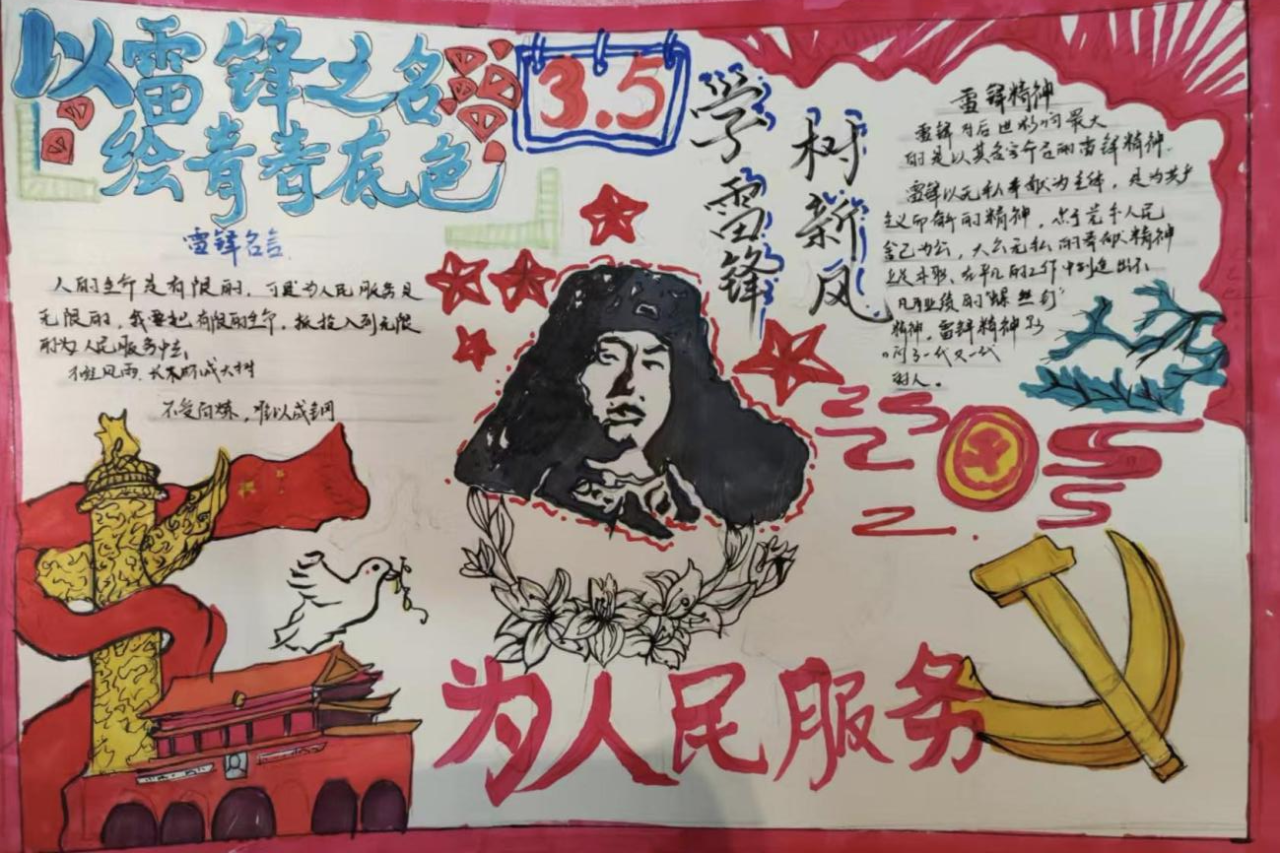 以雷锋之名
绘青春底色
3.5
学雷锋
树新风
雷锋名言
人的生命是有限的，可是为人民服务是
无限的，我要把有限的生命，投入到无限
的为人民服务中去
不经风雨，长不成大树
不受百炼，难以成钢
雷锋精神
雷锋 最大
的是以其名字命名的雷锋精神
雷锋以无私奉献为主体，是为共产
主义而奋斗的精神，忠于党和人民
舍己为公，大公无私的奉献精神
在平凡的工作中创造出不
凡业绩的“螺丝钉”
精神，雷锋精神影
响了一代又一代
的人。
为人民服务